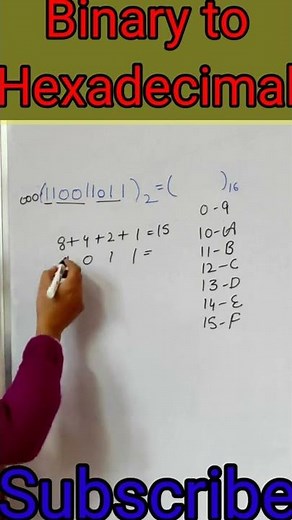 Binary to
Hexadecimal
000(110011011)₂=( )₁₆
8+4+2+1=15
1 0 1 1 =
0-9
10-A
11-B
12-C
13-D
14-E
15-F
Subscribe